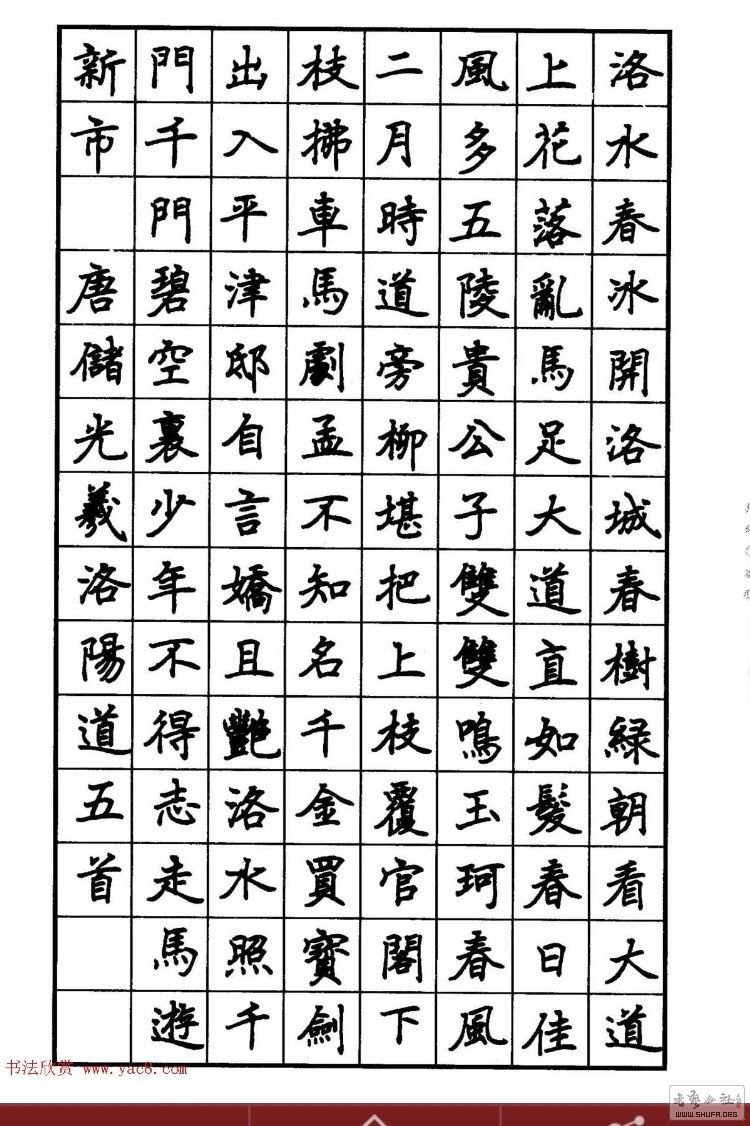 洛水春冰開洛城春樹綠朝看大道
上花落亂馬足大道直如髮春日佳
風多五陵貴公子雙雙鳴玉珂春風
二月時道旁柳堪把上枝覆官閣下
枝拂車馬劇孟不知名千金買寶劍
出入平津邸自言嬌且豔洛水照千
門千門碧空裏少年不得志走馬遊
新市 唐儲光羲洛陽道五首
书法欣赏 www.yac8.com
WWW.SHUFA.ORG